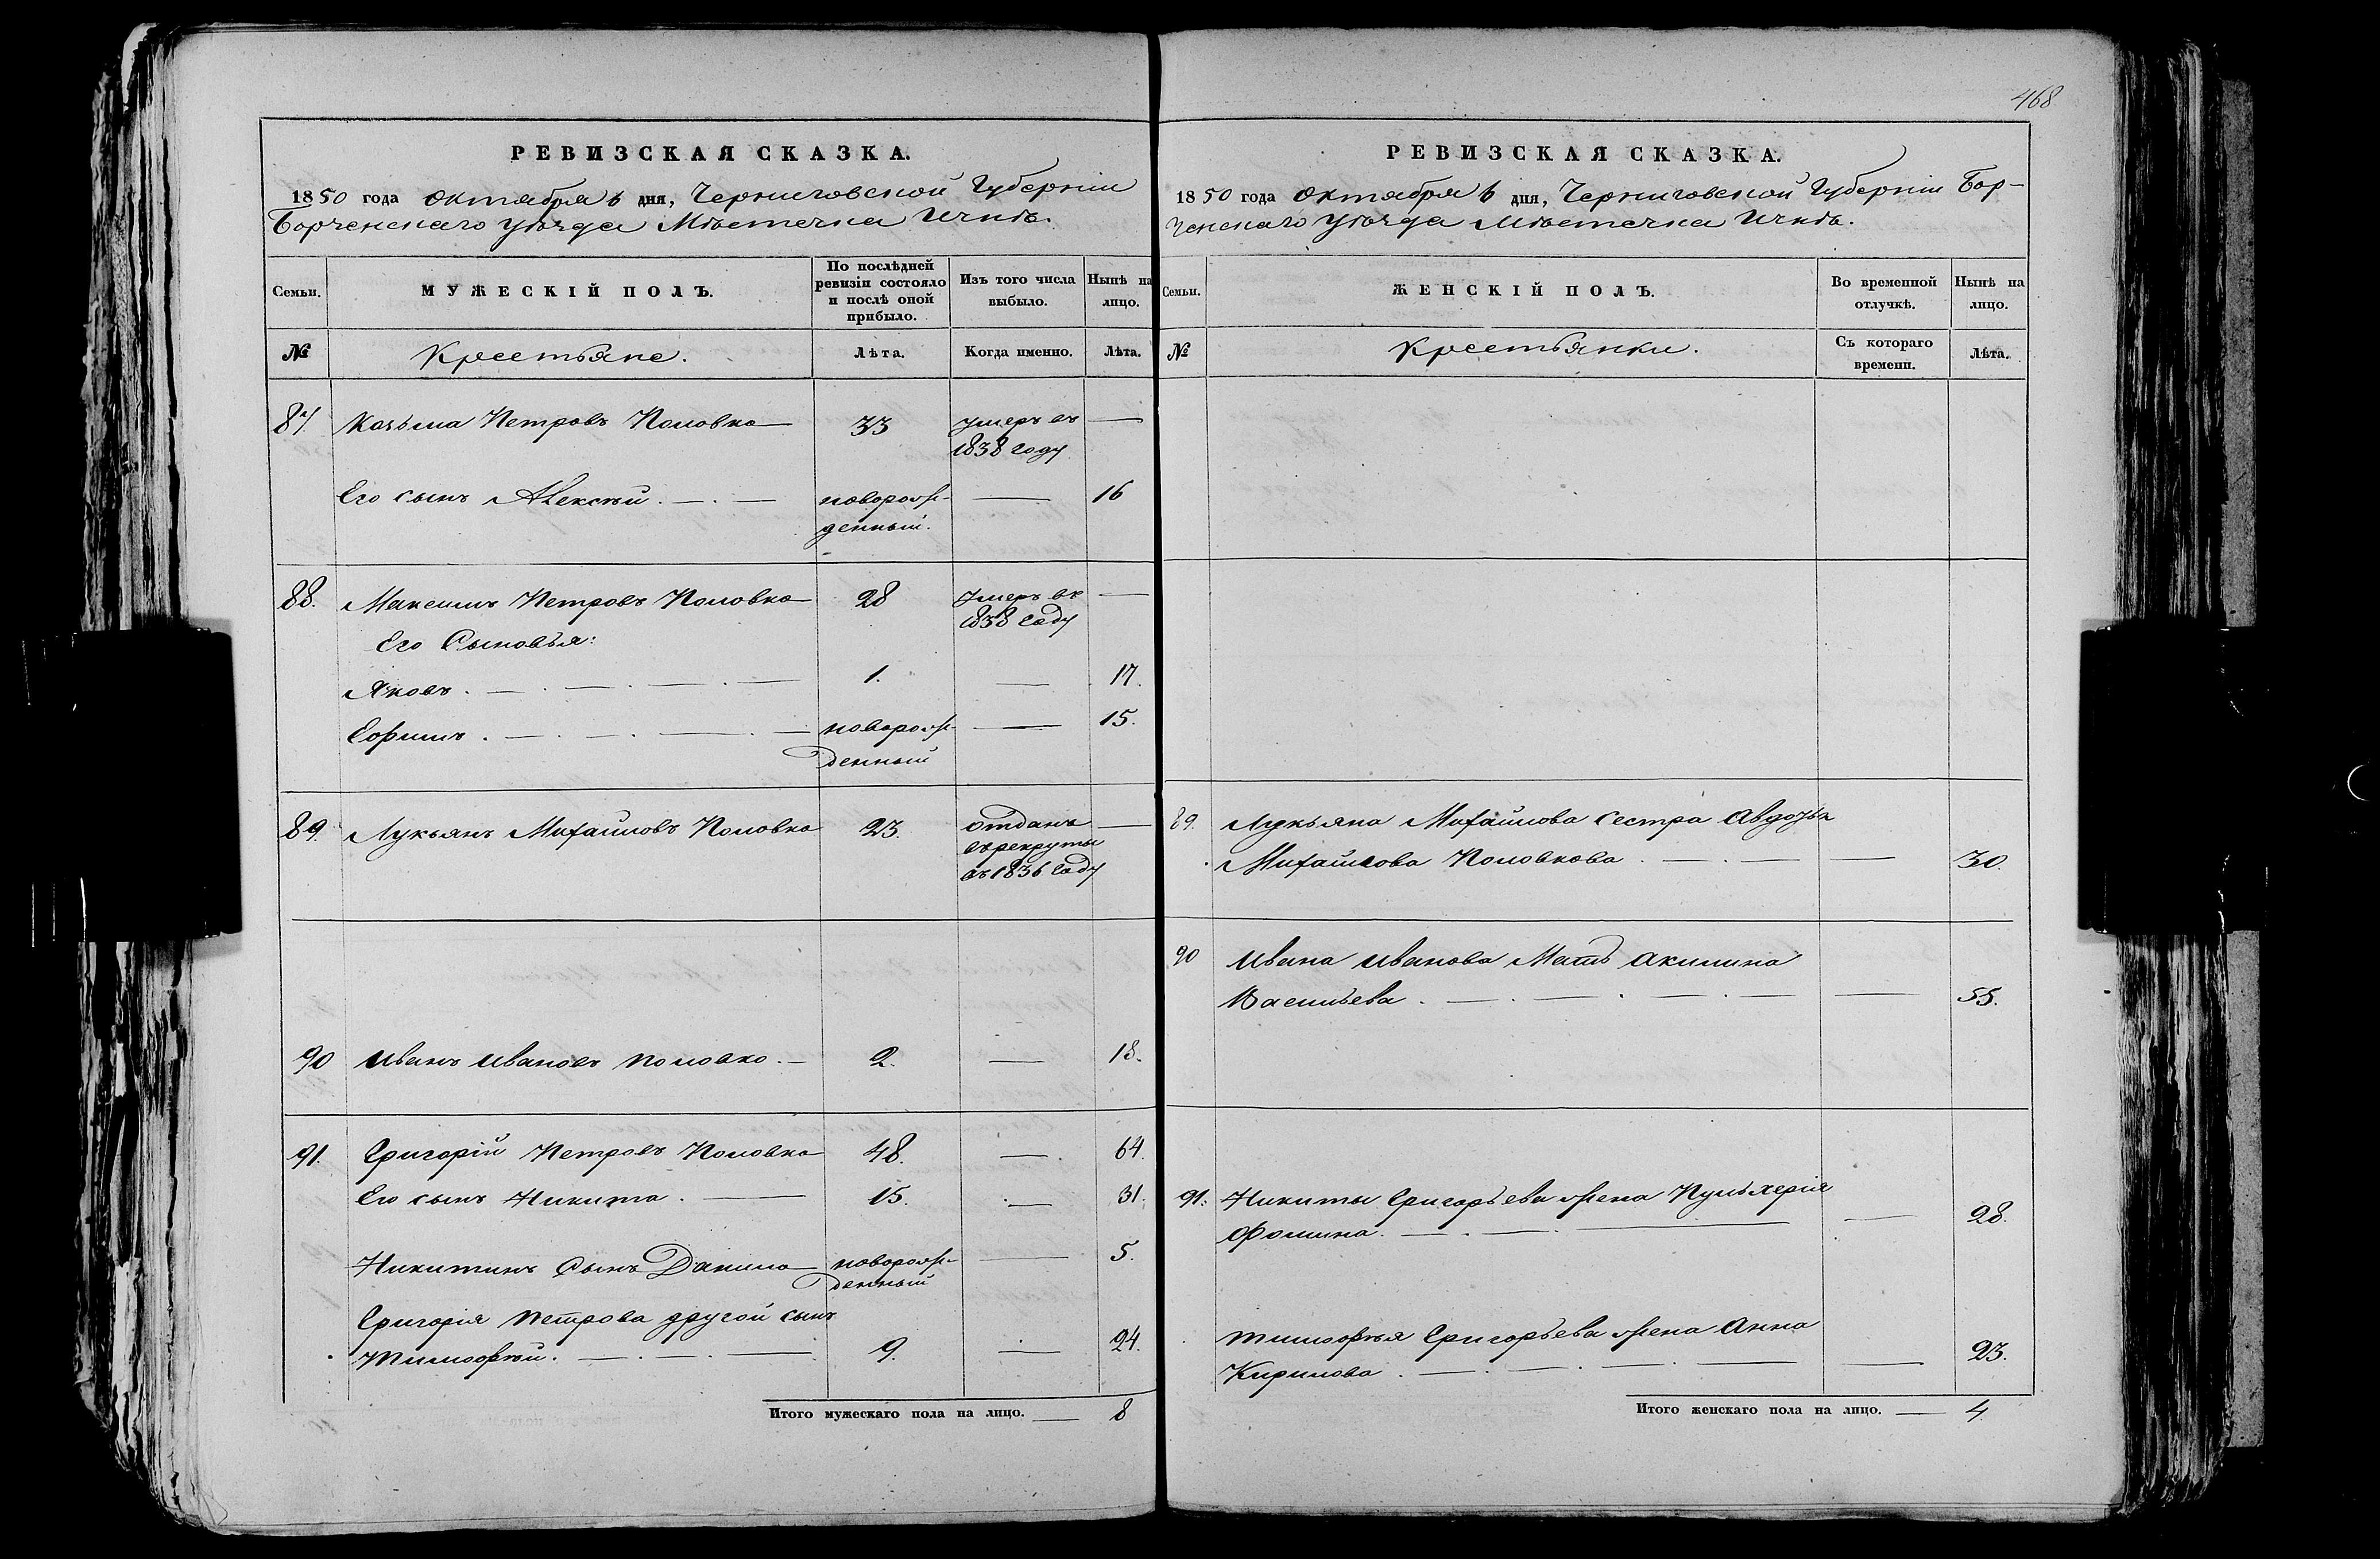 468
РЕВИЗСКАЯ СКАЗКА.
1850 года Октября 6 дня, Черниговской Губерніи
Борзенскаго уѣзда Мѣстечка Ичнѣ.
Семьи.
МУЖЕСКІЙ ПОЛЪ.
По послѣдней
ревизіи состояло
и послѣ оной
прибыло.
Изъ того числа
выбыло.
Нынѣ на
лицо.
№
Крестьяне.
Лѣта.
Когда именно.
Лѣта.
87 Козьма Петровъ Половко — 33 умеръ въ —
1838 году
Его сынъ Алексѣй . — . — новорож- — 16
денный.
88. Максимъ Петровъ Половко 28 умеръ въ —
1838 году
Его Сыновья:
Яковъ . — . — . — . — 1. — 17.
Ефимъ . — . — . — . — новорож- — 15.
денный
89. Лукьянъ Михайловъ Половко 23 отданъ —
въ рекруты
въ 1836 году
90 Иванъ Ивановъ Половко . — 2. — 18.
91. Григорій Петровъ Половко 48. — . 64.
Его сынъ Никита . — 15. . — 31.
Никитинъ Сынъ Данило новорож- — 5.
денный
Григорія Петрова другой сынъ
Тимофѣй . — . — . — 9. — 24.
Итого мужескаго пола на лицо. — 8
РЕВИЗСКАЯ СКАЗКА.
1850 года Октября 6 дня, Черниговской Губерніи Бор-
зенскаго уѣзда Мѣстечка Ичнѣ.
Семьи.
ЖЕНСКІЙ ПОЛЪ.
Во временной
отлучкѣ.
Нынѣ на
лицо.
№
Крестьянки.
Съ котораго
времени.
Лѣта.
89. Лукьяна Михайлова сестра Авдотья
Михайлова Половкова . — . — — 30.
90 Ивана Иванова Мать Акилина
Васильева . — . — . — . — — 55.
91. Никиты Григорьева жена Пульхерія
Фомина . — . — . — — 28.
Тимофѣя Григорьева жена Анна
Кирилова . — . — . — . — — 23.
Итого женскаго пола на лицо. — 4